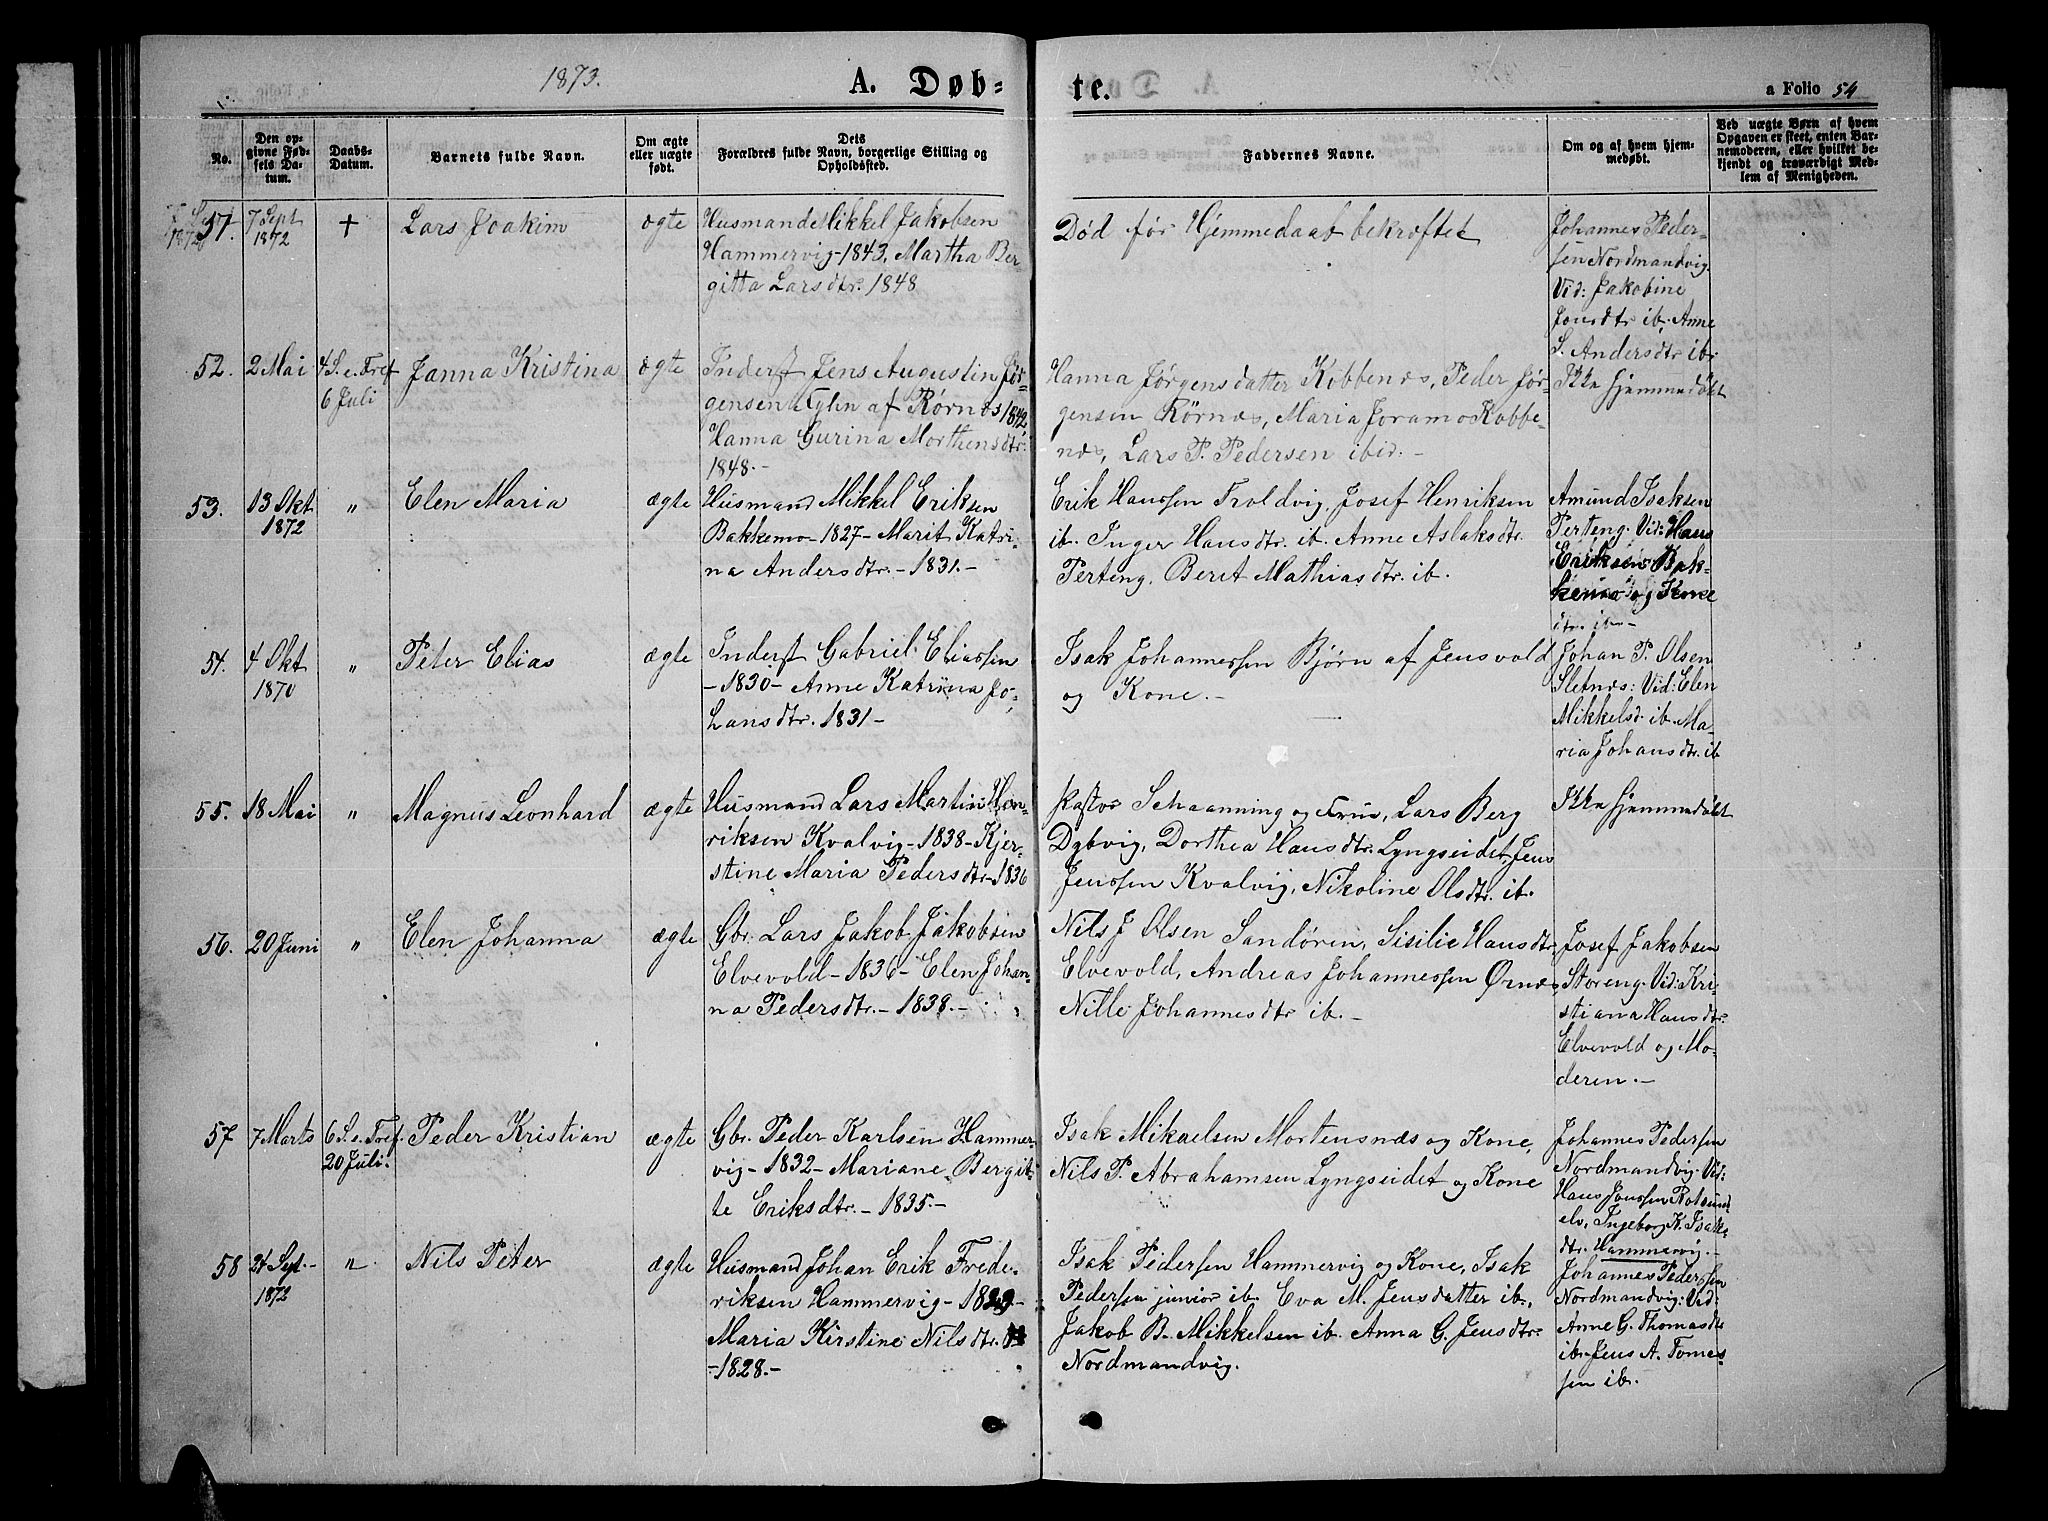 1873.
A. Døb-
te.
a Folio 54
No.
Den op-
givne Fød-
sels Da-
tum.
Daabs-
Datum.
Barnets fulde Navn.
Om ægte
eller uægte
født.
Dets
Forældres fulde Navn, borgerlige Stilling og
Opholdssted.
Faddernes Navne.
Om og af hvem hjem-
medøbt.
Ved uægte Børn af hvem
Opgaven er skeet, enten Bar-
nemoderen, eller hvilket be-
kjendt og troværdigt Med-
lem af Menigheden.
51.
7 Sept
1872
+
Lars Joakim
ægte
Husmand Mikkel Jakobsen
Hammervig - 1843, Martha Ber-
gitta Larsdtr. 1848
Død før Hjemmedaab bekræftet
Johannes Peder-
sen Nordmandvig.
Vid: Jakobine
Jonsdtr ib. Anne
S. Andersdtr ib.
52.
2 Mai
4 S. e. Tref
6 Juli
Janna Kristina
ægte
Inderst Jens Augustin Jør-
gensen af Rørnæs 1842,
Hanna Gurina Morthensdtr.
1848. -
Hanna Jørgensdatter Kobbenæs, Peder Jør-
gensen Rörnæs, Maria Joramo Kobbe-
næs, Lars P. Pedersen ibid. -
Ikke hjemmedøbt
53.
13 Okt
1872
"
Elen Maria
ægte
Husmand Mikkel Eriksen
Bakkemo - 1827 - Marit Katri-
na Andersdtr. - 1831. -
Erik Hanssen Troldvig, Josef Henriksen
ib. Inger Hansdtr. ib. Anne Aslaksdtr.
Perteng, Berit Mathiasdtr. ib.
Amund Isaksen
Perteng. Vid: Hans
Eriksen Bak-
og Kone
ib. -
54.
4 Okt
1870
"
Peter Elias
ægte
Inderst Gabriel Eliassen
- 1830 - Anne Katrina Jo-
hansdtr. 1831 -
Isak Johannessen Bjørn af Jensvold
og Kone. -
Johan P. Olsen
Sletnæs: Vid: Elen
Mikkelsd. ib. Ma-
ria Johansdtr. ib
55.
18 Mai
"
Magnus Leonhard
ægte
Husmand Lars Martin Hen-
riksen Kvalvig - 1838 - Kjer-
stine Maria Pedersdtr - 1836
Pastor Schaanning og Frue, Lars Berg
Dybvig, Dorthea Hansdtr. Lyngseidet, Jens
Jenssen Kvalvig, Nikoline Olsdtr. ib.
Ikke hjemmedøbt
56.
20 Juni
"
Elen Johanna
ægte
Gbr. Lars Jakob Jakobsen
Elvevold - 1836 - Elen Johan-
na Pedersdtr. - 1838. -
Nils J Olsen Sandören, Sisilie Hansdtr.
Elvevold, Andreas Johannessen Ørnæs,
Nille Johannesdtr ib. -
Josef Jakobsen
Storeng. Vid: Kri-
stiana Hansdtr.
Elvevold og Mo-
deren. -
57
7 Marts
6 S. e. Tref.
20 Juli.
Peder Kristian
ægte
Gbr. Peder Karlsen Hammer-
vig - 1832 - Mariane Bergit-
te Eriksdtr. - 1835. -
Isak Mikaelsen Mortensnæs og Kone,
Nils P. Abrahamsen Lyngseidet og Kone
Johannes Pedersen
Nordmandvig. Vid:
Hans Jonssen Rotsund-
elv, Ingeborg K. Isaks-
dtr. Hammervig. -
58
24 Sept. -
1872
"
Nils Peter
ægte
Husmand Johan Erik Frede-
riksen Hammervig - 1829 -
Maria Kirstine Nilsdtr.
- 1828. -
Isak Pedersen Hammervig og Kone, Isak
Pedersen junior ib. Eva M. Jensdatter ib.,
Jakob B. Mikkelsen ib. Anna G. Jensdtr.
Nordmandvig.
Johannes Pedersen
Nordmandvig: Vid:
Anne G. Thomasdtr
ib. Jens A. Tomes-
sen ib.